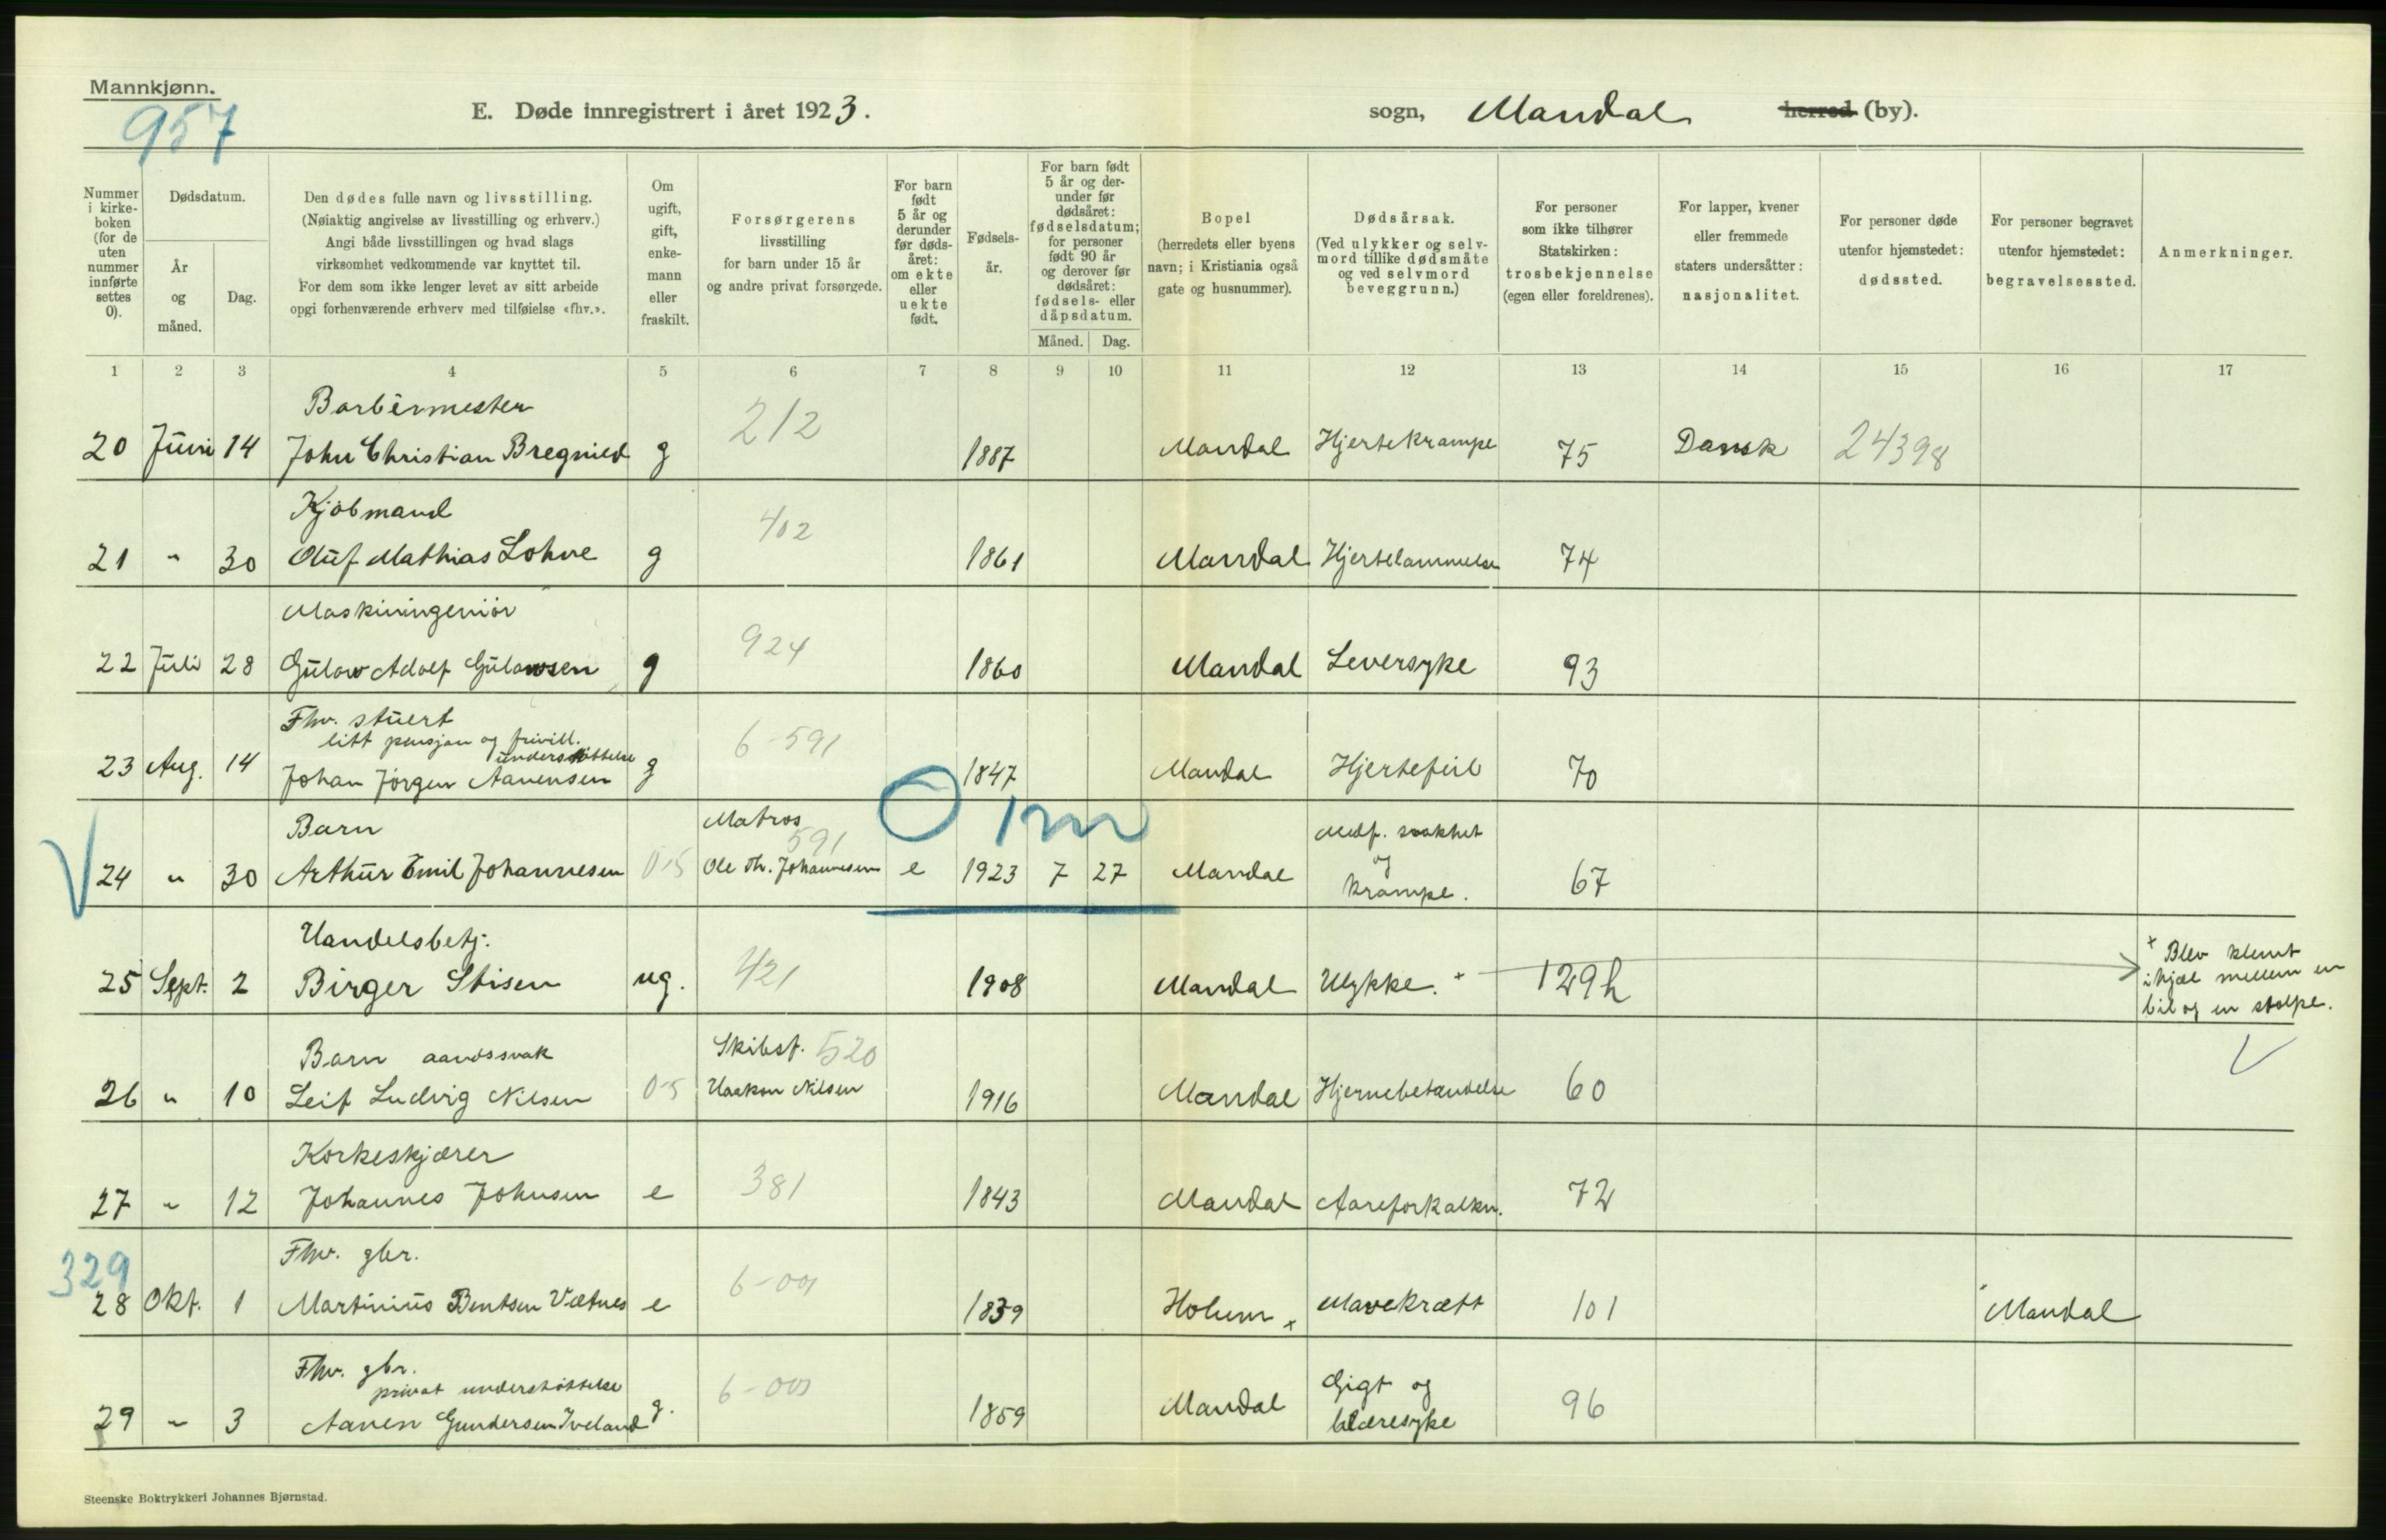 Mannkjønn.
957
E. Døde innregistrert i året 1923.
sogn, Mandal herred (by).
Nummer i kirke-boken (for de uten nummer innførte settes 0).
Dødsdatum.
År og måned.
Dag.
Den dødes fulle navn og livsstilling.
(Nøiaktig angivelse av livsstilling og erhverv.)
Angi både livsstillingen og hvad slags
virksomhet vedkommende var knyttet til.
For dem som ikke lenger levet av sitt arbeide
opgi forhenværende erhverv med tilføielse «fhv.».
Om ugift, gift, enke-mann eller fraskilt.
Forsørgerens
livsstilling
for barn under 15 år
og andre privat forsørgede.
For barn født 5 år og derunder før døds-året: om ekte eller uekte født.
Fødsels-år.
For barn født 5 år og der-under før dødsåret: fødselsdatum; for personer født 90 år og derover før dødsåret: fødsels- eller dåpsdatum.
Måned. Dag.
Bopel
(herredets eller byens
navn; i Kristiania også
gate og husnummer).
Dødsårsak.
(Ved ulykker og selv-
mord tillike dødsmåte
og ved selvmord
beveggrunn.)
For personer
som ikke tilhører
Statskirken:
trosbekjennelse
(egen eller foreldrenes).
For lapper, kvener
eller fremmede
staters undersåtter:
nasjonalitet.
For personer døde
utenfor hjemstedet:
dødssted.
For personer begravet
utenfor hjemstedet:
begravelsessted.
Anmerkninger.
1 2 3 4 5 6 7 8 9 10 11 12 13 14 15 16 17
Barbérmester
212
20 Juni 14 John Christian Bregnied g 1887 Mandal Hjertekrampe 75 Dansk 24398
Kjöbmand
402
21 " 30 Oluf Mathias Lohne g 1861 Mandal Hjertelammelse 74
Maskiningeniör
924
22 Juli 28 Gulow Adolf Gulowsen g 1860 Mandal Leversyke 93
Fhv. stuert
litt pensjon og frivill.
understöttelse
6-591
23 Aug. 14 Johan Jörgen Aanensen g 1847 Mandal Hjertefeil 70
0 1 m
Barn Matros Medf. svakhet
591 og
24 " 30 Arthur Emil Johannesen 0-5 Ole Th. Johannesen e 1923 7 27 Mandal krampe. 67
Handelsbetj.
421
25 Sept. 2 Birger Stisen ug. 1908 Mandal Ulykke. + 129h
+ Blev klemt
ihjæl mellem en
bil og en stolpe.
Barn aandssvak Skibsf. 520
26 " 10 Leif Ludvig Nilsen 0-5 Haakon Nilsen 1916 Mandal Hjernebetændelse 60
Korkeskjærer
381
27 " 12 Johannes Johnsen e 1843 Mandal Aareforkalkn. 72
329
Fhv. gbr.
6-001
28 Okt. 1 Martinius Bentsen Vætnes e 1839 Holum + Mavekræft 101 Mandal
Fhv. gbr.
privat understöttelse
6-001
Gigt og
29 " 3 Aanen Gundersen Iveland g. 1859 Mandal blæresyke 96
Steenske Boktrykkeri Johannes Bjørnstad.